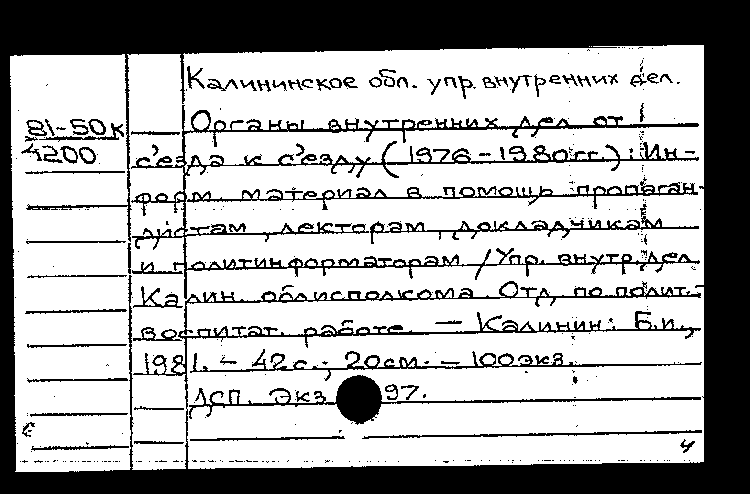 Калининское обл. упр. внутренних дел.
81-50к
4200
Органы внутренних дел от
с'езда к с'езду (1976-1980гг.): Ин-
форм. материал в помощь пропаган-
дистам, лекторам, докладчикам
и политинформаторам / Упр. внутр. дел
Калин. облисполкома. Отд. по полит.-
воспитат. работе. — Калинин: Б.и.,
1981. - 42с.; 20см. - 100экз.
ДСП. Экз 97.